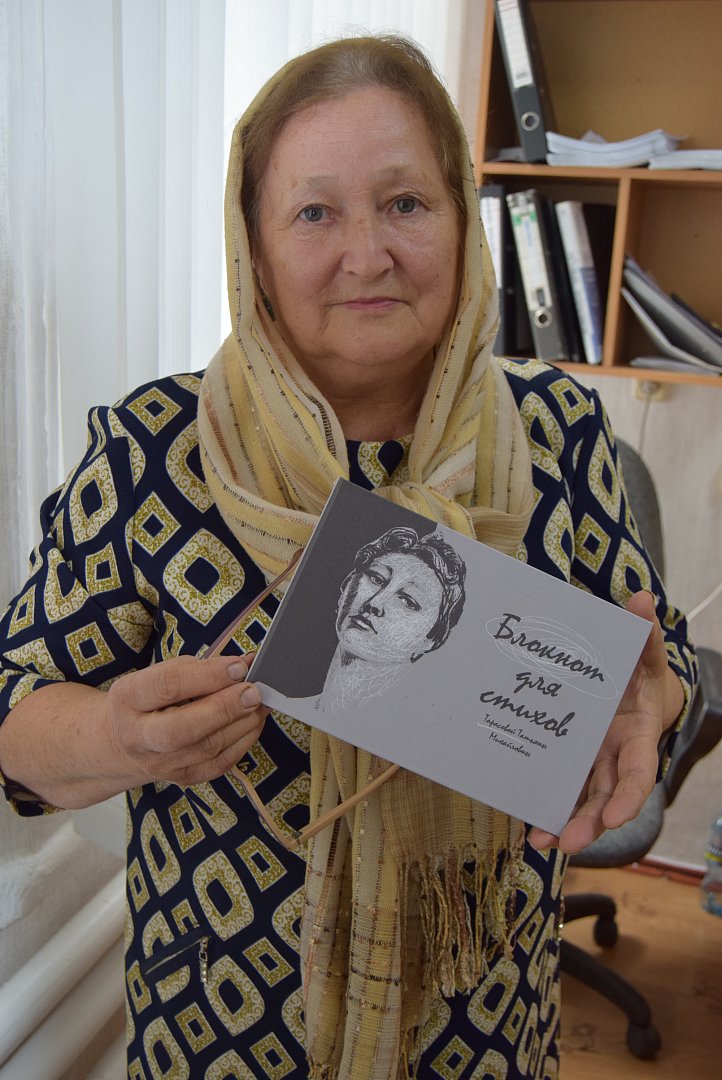 Блокнот
для
стихов
Тарасовой Татьяны
Михайловны